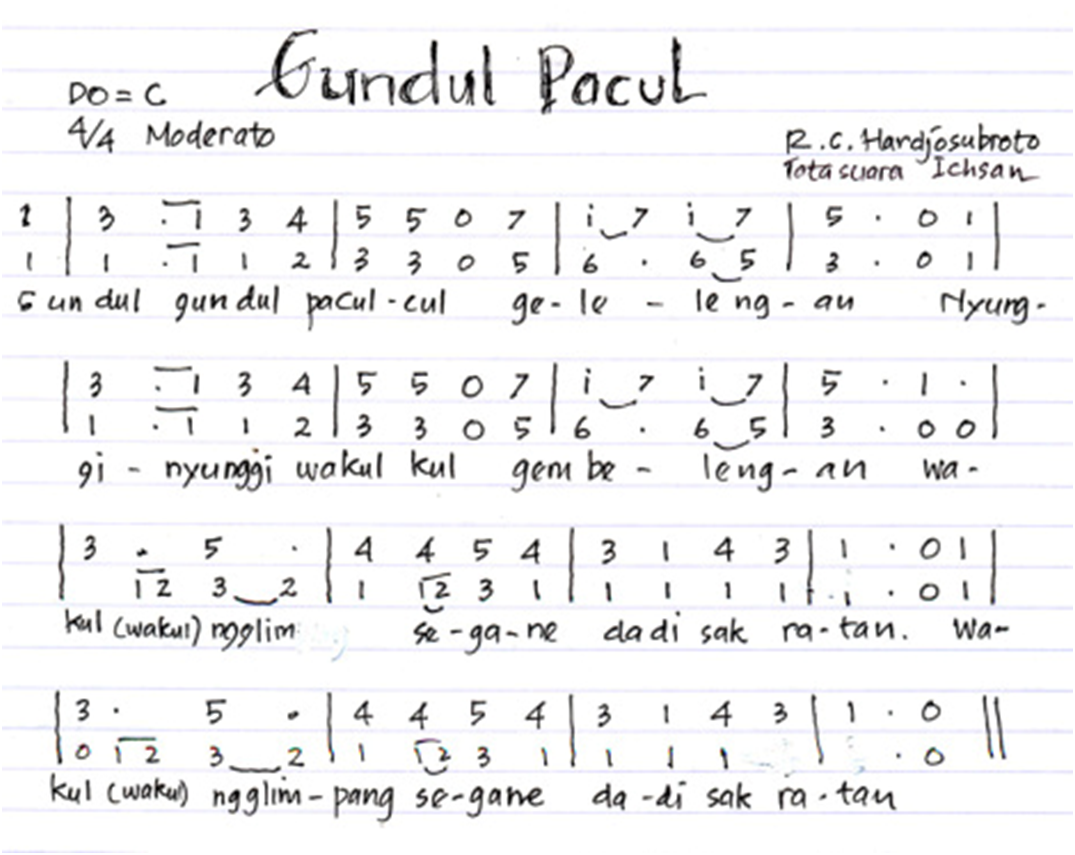 Gundul Pacul
DO = C
4/4 Moderato
R.C. Hardjosubroto
Tata suara Ichsan
1 | 3 . 1 3 4 | 5 5 0 7 | i 7 i 7 | 5 . 0 1 |
1 | 1 . 1 1 2 | 3 3 0 5 | 6 . 6 5 | 3 . 0 1 |
Gundul gundul pacul-cul ge-le - leng-an Nyung-
| 3 . 1 3 4 | 5 5 0 7 | i 7 i 7 | 5 . 1 . |
| 1 . 1 1 2 | 3 3 0 5 | 6 . 6 5 | 3 . 0 0 |
gi - nyunggi wakul kul gembe - leng-an wa-
| 3 . 5 . | 4 4 5 4 | 3 1 4 3 | 1 . 0 1 |
1 2 3 2 | 1 1 2 3 1 | 1 1 1 1 | 1 . 0 1 |
kul (wakul) ngglim se-ga-ne dadi sak ra-tan. Wa-
| 3 . 5 . | 4 4 5 4 | 3 1 4 3 | 1 . 0 ||
| 0 1 2 3 2 | 1 1 2 3 1 | 1 1 1 | . 0
kul (wakul) ngglim-pang se-gane da-di sak ra-tan